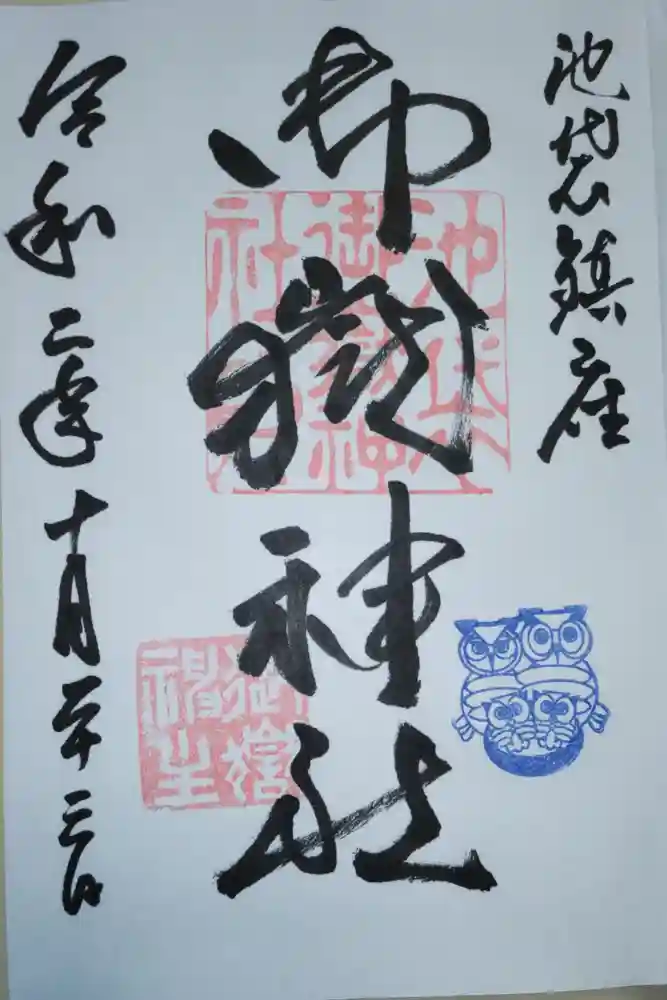 池袋鎮座
御嶽神社
令和二年十月二十三日
池袋
御嶽神
社